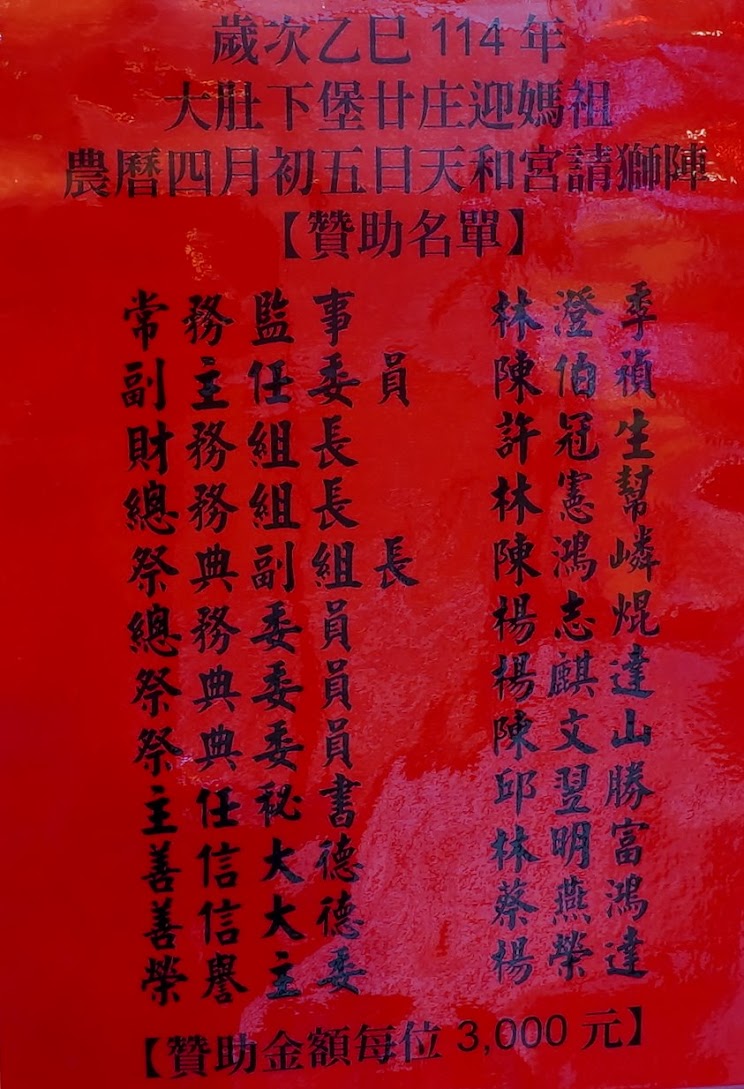 歲次乙巳 114 年
大肚下堡廿庄迎媽祖
農曆四月初五日天和宮請獅陣
【贊助名單】
常務監事 林澄季
副主任委員 陳伯禎
財務組長 許冠生
總務組長 林憲幫
祭典副組長 陳鴻嶙
總務委員 楊志焜
祭典委員 楊麒達
祭典委員 陳文山
主任秘書 邱翌勝
善信大德 林明富
善信大德 蔡燕鴻
榮譽主委 楊榮達
【贊助金額每位 3,000 元】